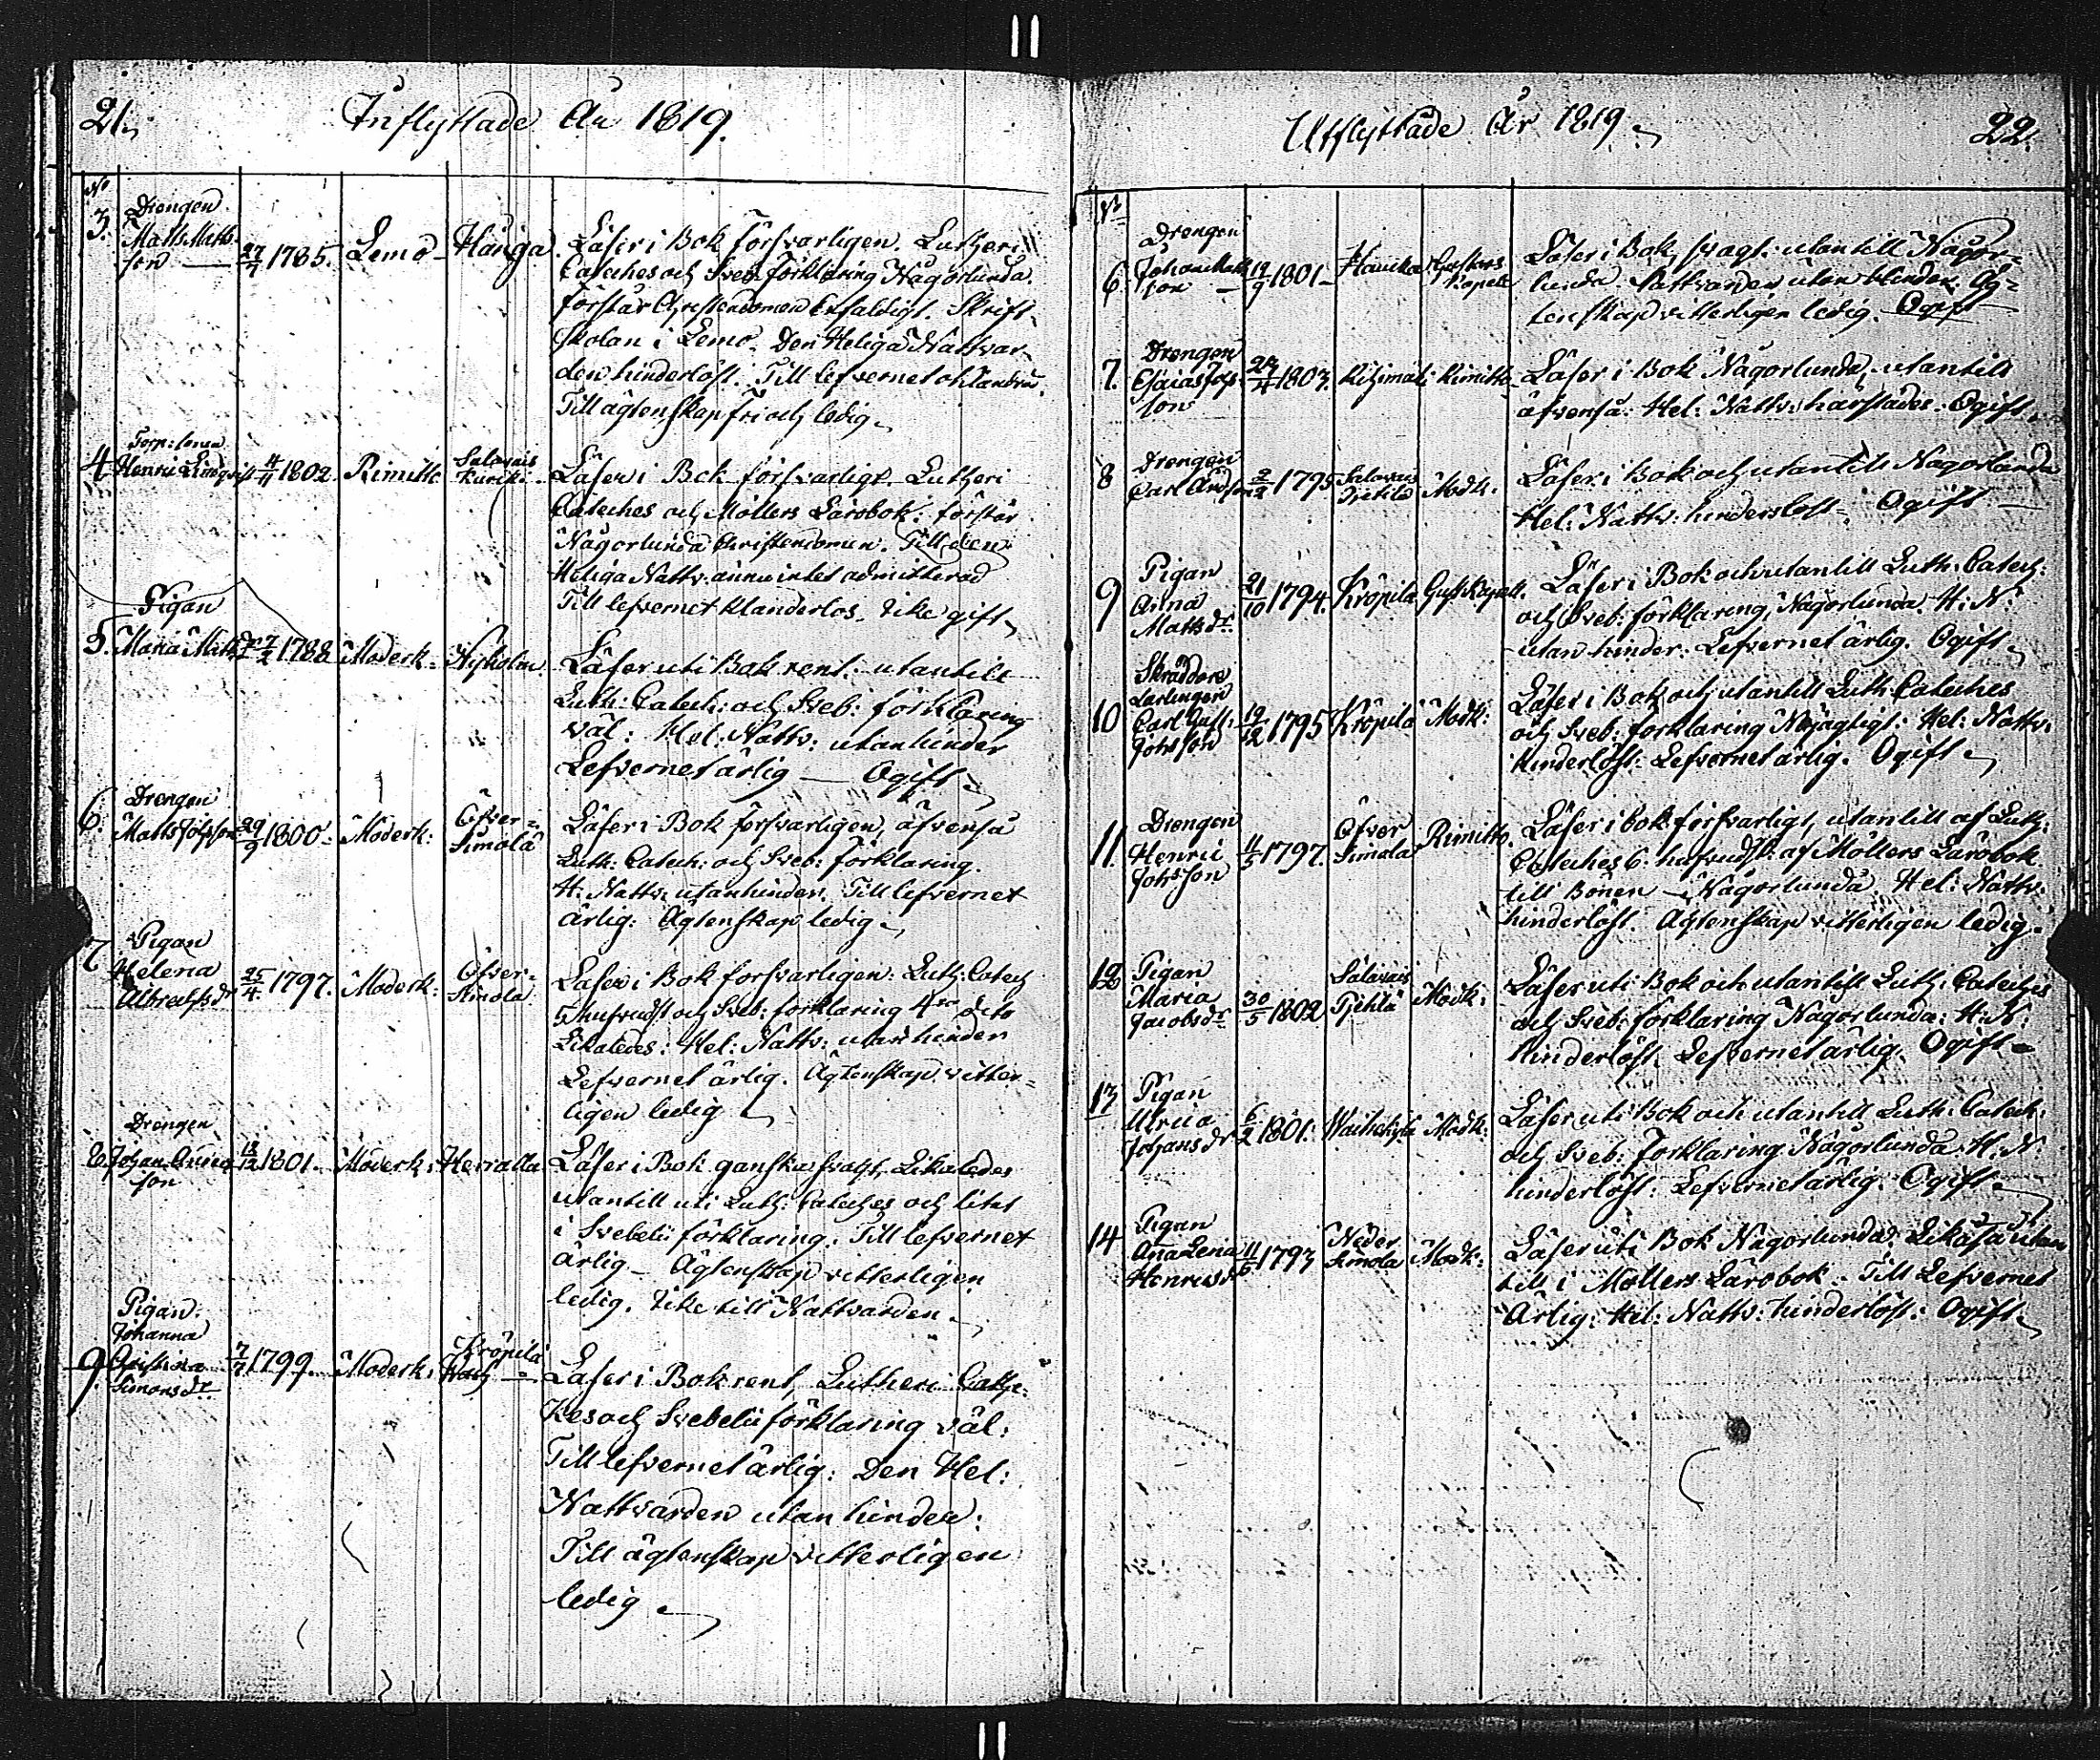 21.
Inflyttade År 1819.
No
3. Drengen
Matts Matts-
son 27/7 1785. Lemo Hauga
Läser i Bok försvarligen. Lutheri
Cateches och Sveb. Förklaring Någorlunda.
förstår Christendomen Enfaldigt. Skrift-
skolan i Lemo. Den Heliga Nattvar-
den hinderlöst. Till lefvernet oklandrad
Till ägtenskap fri och ledig.
4. Torp: sonen
Henric Lindqvist 4/11 1802. Rimitto Salavais
Kuriki
Läser i Bok försvarligt. Lutheri
Cateches och Möllers Lärobok. förstår
Någorlunda Christendomen. Till den
Heliga Nattv: ännu intet admitterad
Till lefvernet klanderlös. Icke gift
5. Pigan
Maria Matts dr 7/2 1788 Moderk. Nyholm.
Läser uti Bok rent. utantill
Luth: Catech: och Sveb: förklaring
väl: Hel: Nattv: utan hinder
Lefvernet ärlig — Ogift
6. Drengen
Matts Johsson 29/9 1800. Moderk: Öfver-
Simola
Läser i Bok försvarligen, äfvenså
Luth: Catech: och Sveb: Förklaring.
H: Nattv: utan hinder. Till lefvernet
ärlig: Ägtenskap ledig
7 Pigan
Helena
Albrechtsdr 25/4. 1797. Moderk: Öfver-
Simola
Läser i Bok försvarligen: Luth: Catech
5 hufvudst och Sveb: förklaring 4ra dito
Likaledes: Hel: Nattv: utan hinder
Lefvernet ärlig. Ägtenskap vitter-
ligen ledig
8. Drengen
Johan Anders
son 18/12 1801. Moderk: Herralla
Läser i Bok ganska svagt, Likaledes
utantill uti Luth: Cateches och litet
i Svebelii förklaring. Till lefvernet
ärlig — Ägtenskap vitterligen
ledig. Icke till Nattvarden
9. Pigan.
Johanna
Christina
Simonsdr 7/7 1799. Moderk: Kröpilä
Läser i Bok rent, Lutheri Cathe-
kes och Svebelii förklaring väl:
Till lefvernet ärlig: Den Hel:
Nattvarden utan hinder:
Till ägtenskap vitterligen
ledig

Utflyttade År 1819.
22.
No
6. Drengen
Johan Matts
son 19/9 1801 Hauika Gustavs
Kapell
Läser i Bok, svagt. utantill Någor-
lunda. Nattvarden utan hinder. Äg-
tenskap vitterligen ledig. Ogift
7. Drengen
Esaias Joh
son 24/4 1803. Kihimäki Rimitto
Läser i Bok Någorlunda, utantill
äfvenså: Hel: Nattv: härstädes. Ogift
8 Drengen
Carl Andson 2/2 1795 Salavais
Tjetilä Modk:
Läser i Bok och utantill Någorlunda
Hel: Nattv: hinderslöst — Ogift
9 Pigan
Anna
Mattsdr 21/10 1794. Kröpilä Gust Kapell.
Läser i Bok och utantill Luth: Catech:
och Sveb: förklaring, Någorlunda. H: N:
utan hinder. Lefvernet ärlig. Ogift
10 Skräddare
Lärlingen
Carl Gust:
Johsson 19/12 1795 Kröpilä Modk:
Läser i Bok och utantill Luth: Cateches
och Sveb: förklaring Nöjagtigt. Hel: Nattv:
hinderlöst: Lefvernet ärlig. Ogift
11. Drengen
Henric
Johsson 11/5 1797. Öfver
Simola Rimitto.
Läser i bok försvarligt, utantill af Luth:
Cateches 6. hufvudst: af Möllers Lärobok
till Bönen — Någorlunda. Hel: Nattv:
hinderlöst. Ägtenskap vitterligen ledig.
12 Pigan
Maria
Jacobsdr 30/5 1802 Salavais
Tjetilä Modk:
Läser uti Bok och utantill Luth: Cateches
och Sveb: förklaring Någorlunda: H: N:
hinderlöst. Lefvernet ärlig. Ogift
13 Pigan
Ulrica
Johans dr 6/2 1801. Modk:
Läser uti Bok och utantill Luth: Catech:
och Sveb: Förklaring Någorlunda. H: N:
hinderlöst: Lefvernet ärlig. Ogift
14 Pigan
Ana Lena
Henricsdr 11/6 1793 Neder
Simola Modk:
Läser uti Bok Någorlunda, Likaså utan
till i Möllers Lärobok. Till Lefvernet
Ärlig: Hel: Nattv: hinderlöst: Ogift